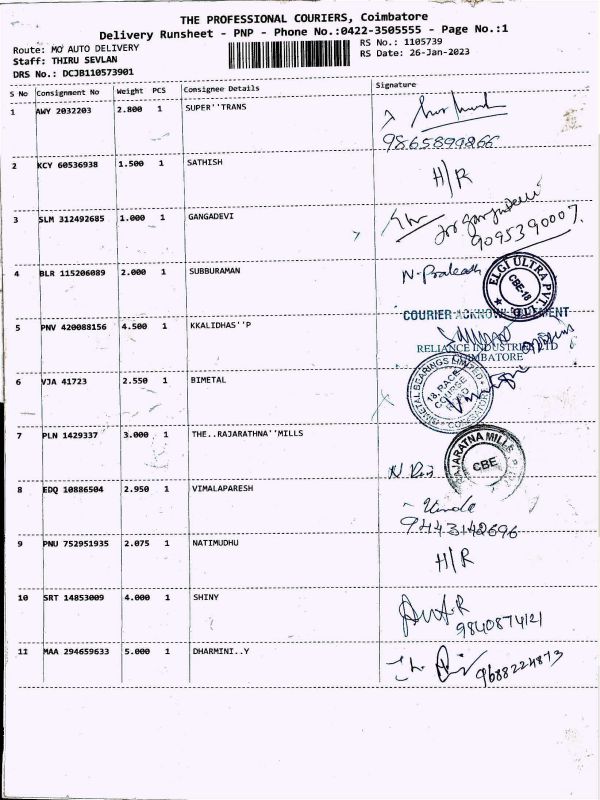 THE PROFESSIONAL COURIERS, Coimbatore
Delivery Runsheet - PNP - Phone No.:0422-3505555 - Page No.:1
Route: MO AUTO DELIVERY
RS No.: 1105739
Staff: THIRU SEVLAN
RS Date: 26-Jan-2023
DRS No.: DCJB110573901
S No Consignment No Weight PCS Consignee Details Signature
1 AWY 2032203 2.800 1 SUPER''TRANS
9865899266
2 KCY 60536938 1.500 1 SATHISH
H/R
3 SLM 312492685 1.000 1 GANGADEVI
9095390007.
4 BLR 115206089 2.000 1 SUBBURAMAN
N. Prakash
ELGI ULTRA PVT. LTD
CBE-18
COURIER ACKNOWLEDGEMENT
5 PNV 420088156 4.500 1 KKALIDHAS''P
RELIANCE INDUSTRIES LTD
COIMBATORE
6 VJA 41723 2.550 1 BIMETAL
BIMETAL BEARINGS LIMITED
18, RACE COURSE ROAD
COIMBATORE
7 PLN 1429337 3.000 1 THE..RAJARATHNA''MILLS
RAJARATNA MILLS
CBE
8 EDQ 10886504 2.950 1 VIMALAPARESH
9443142696
9 PNU 752951935 2.075 1 NATIMUDHU
H/R
10 SRT 14853009 4.000 1 SHINY
9840874121
11 MAA 294659633 5.000 1 DHARMINI..Y
9688224873